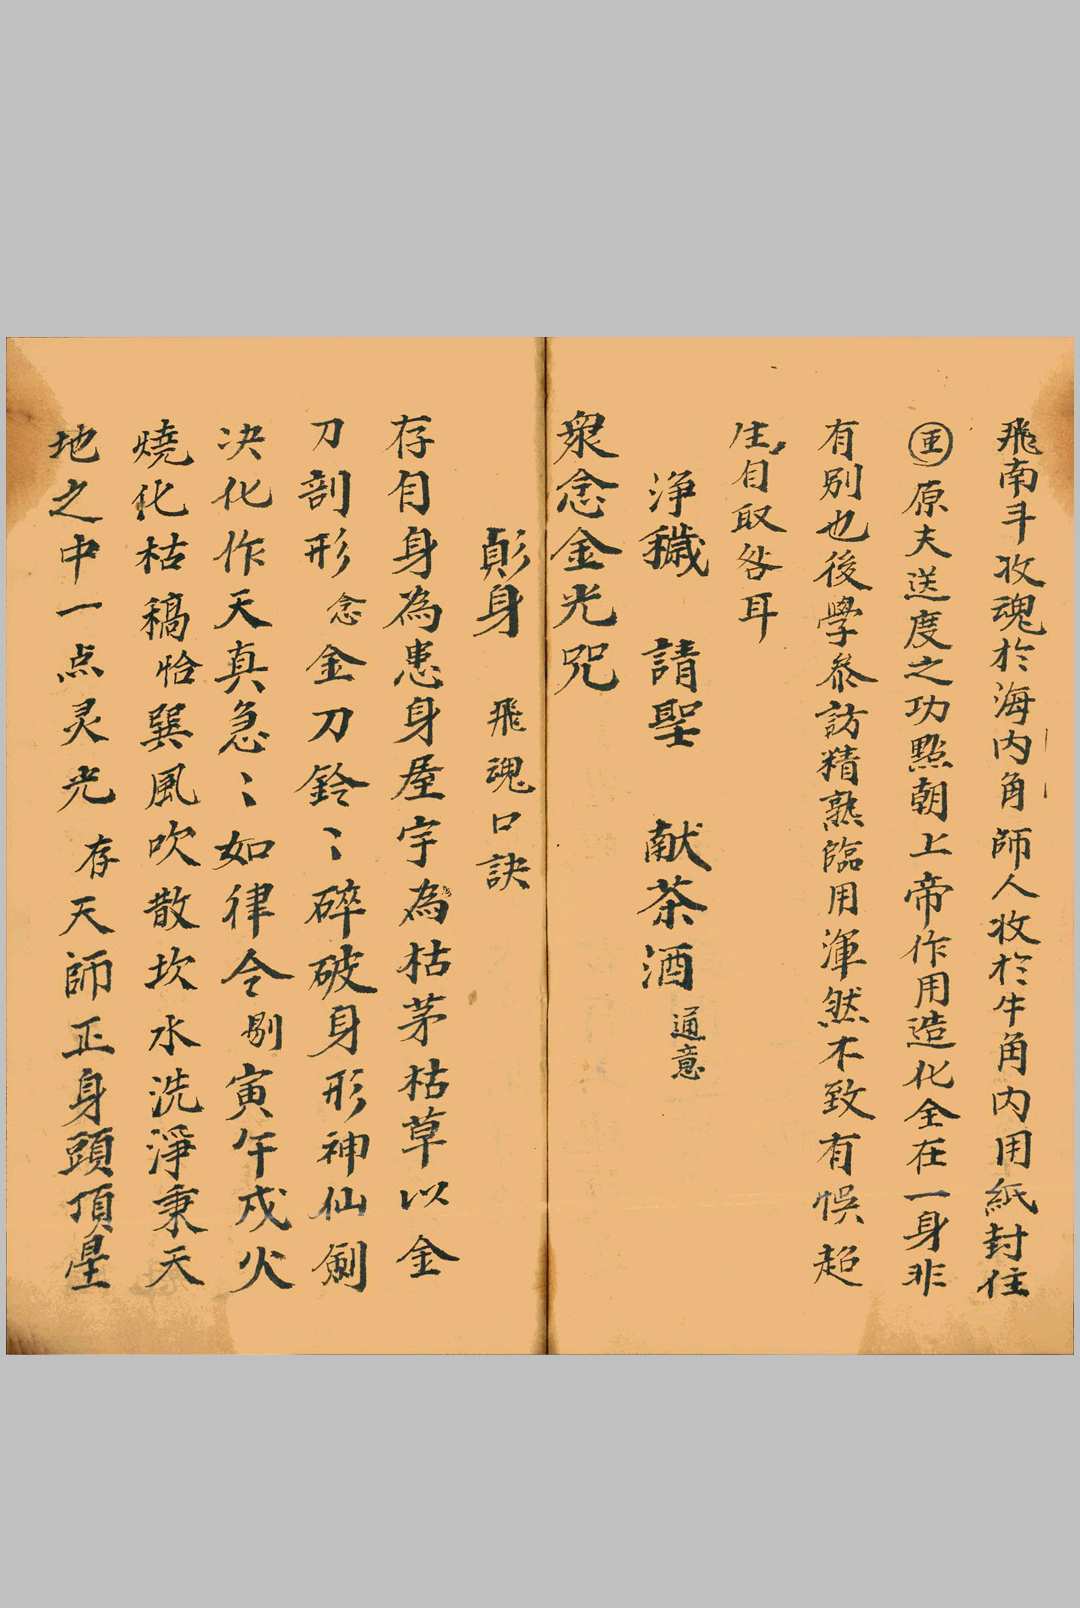 飛南斗收魂於海內角師人收於牛角內用紙封住
原夫送度之功點朝上帝作用造化全在一身非
有別也後學參訪精熟臨用渾然不致有悞超
生自取咎耳
淨穢　請聖　献茶酒　通意
衆念金光咒
身　飛魂口訣
存自身為患身屋宇為枯茅枯草以金
刀剖形念金刀鈴〻碎破身形神仙劍
决化作天真急〻如律令剔寅午戌火
燒化枯稿恰巽風吹散坎水洗淨秉天
地之中一点灵光存天師正身頭頂星